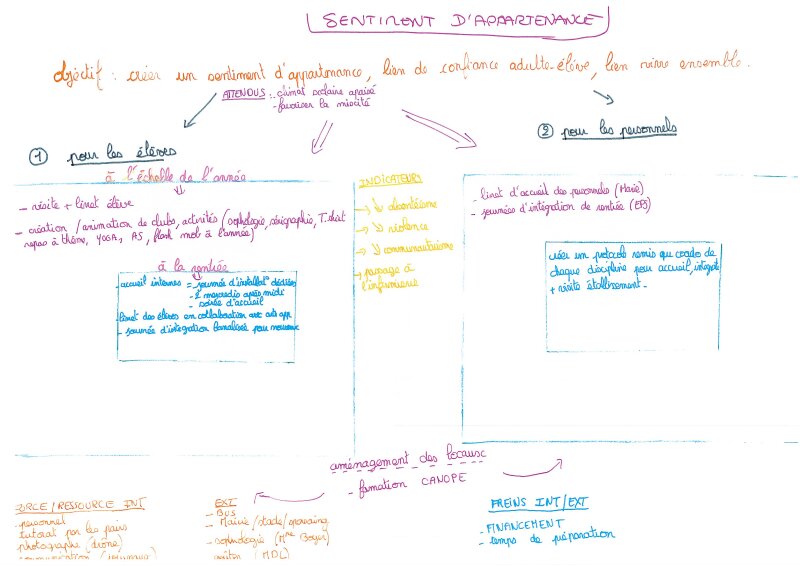 SENTIMENT D'APPARTENANCE
Objectif : créer un sentiment d'appartenance, lien de confiance adulte-élève, bien vivre ensemble.
ATTENDUS : - climat scolaire apaisé
- favoriser la mixité
① pour les élèves
à l'échelle de l'année
- visite + livret élève
- création / animation de clubs, activités (sophologie, sérigraphie, T.shirt
repas à thème, YOGA, AS, flash mob à l'année)
à la rentrée
- accueil internes = - journée d'installat° dédiées
- 2 mercredis après midi
- soirée d'accueil
- livret des élèves en collaboration avec arts app
- journée d'intégration banalisée pour nouveaux
INDICATEURS
→ ↘ absentéisme
→ ↘ violence
→ ↘ communautarisme
→ passage à
l'infirmerie
② pour les personnels
- livret d'accueil des personnels (Marie)
- journées d'intégration de rentrée (EPS)
créer un protocole remis au coordo de
chaque discipline pour accueil, intégrate
+ visite établissement.
aménagement des locaux
- formation CANOPE
FORCE / RESSOURCE INT
- personnel
tutorat par les pairs
photographe (drône)
communication
EXT
- BUS
- Mairie / stade /
- sophologie (Mme Boyer)
MDL)
FREINS INT / EXT
- FINANCEMENT
- temps de préparation